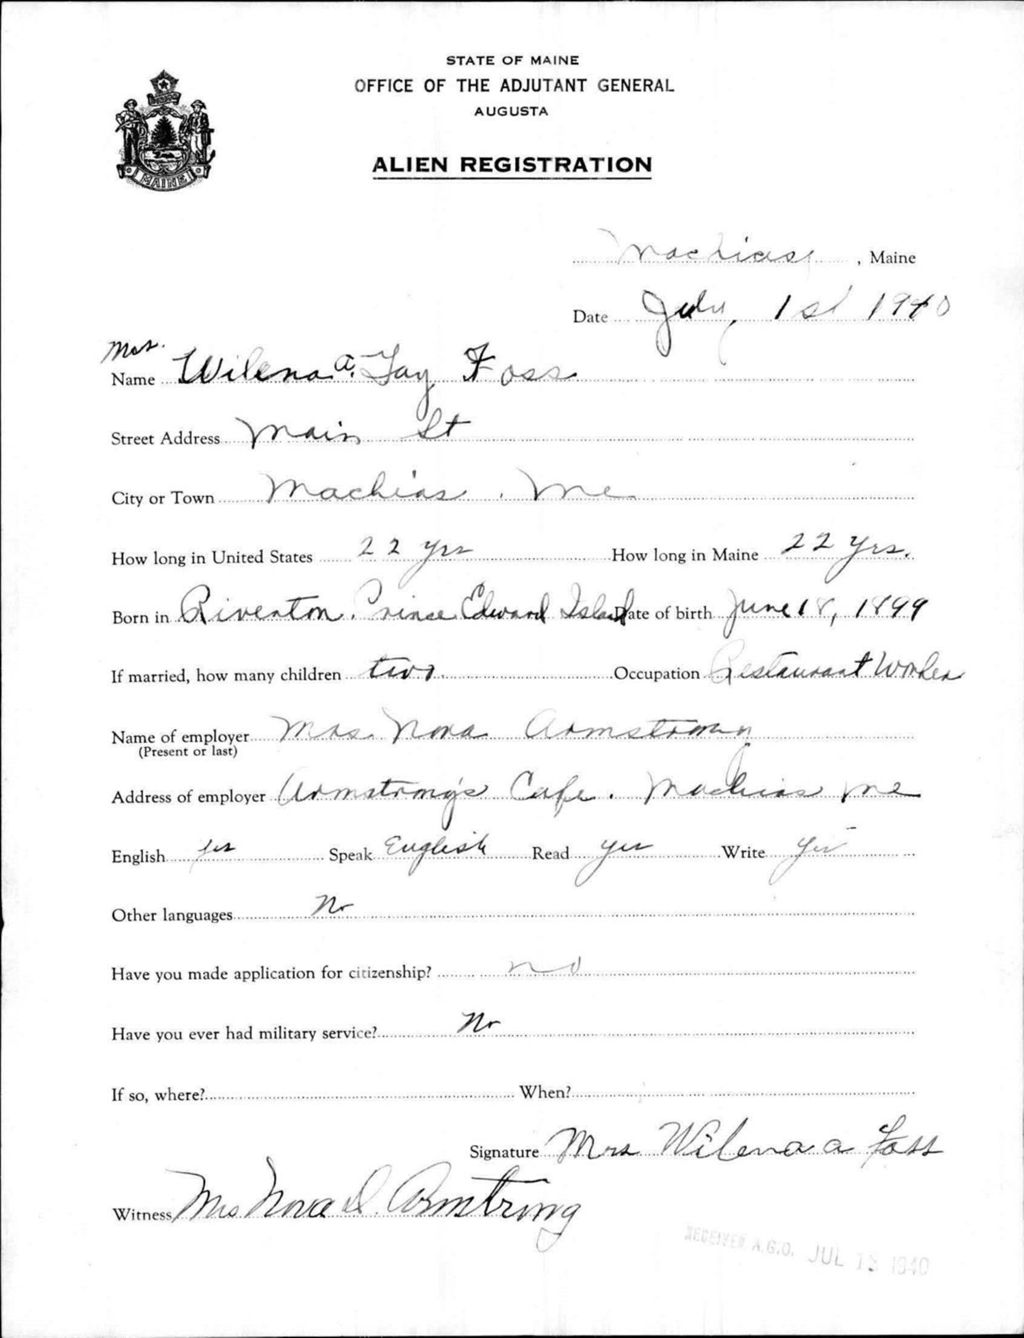 STATE OF MAINE
OFFICE OF THE ADJUTANT GENERAL
AUGUSTA
ALIEN REGISTRATION
MAINE
Machias, Maine
Date July, 1st 1940
Mrs.
Name Wilena A. Foss
Street Address Main St
City or Town Machias, Me
How long in United States 22 yrs How long in Maine 22 yrs.
Born in Riverton, Prince Edward Island Date of birth June 18, 1899
If married, how many children two Occupation Restaurant Worker
Name of employer Mrs. Nora Armstrong
(Present or last)
Address of employer Armstrong's Cafe. Machias Me
English yes Speak English Read yes Write yes
Other languages No
Have you made application for citizenship? no
Have you ever had military service? No
If so, where? When?
Signature Mrs Wilena A Foss
Witness Mrs Nora D. Armstrong
RECEIVED A.G.O. JUL 1940